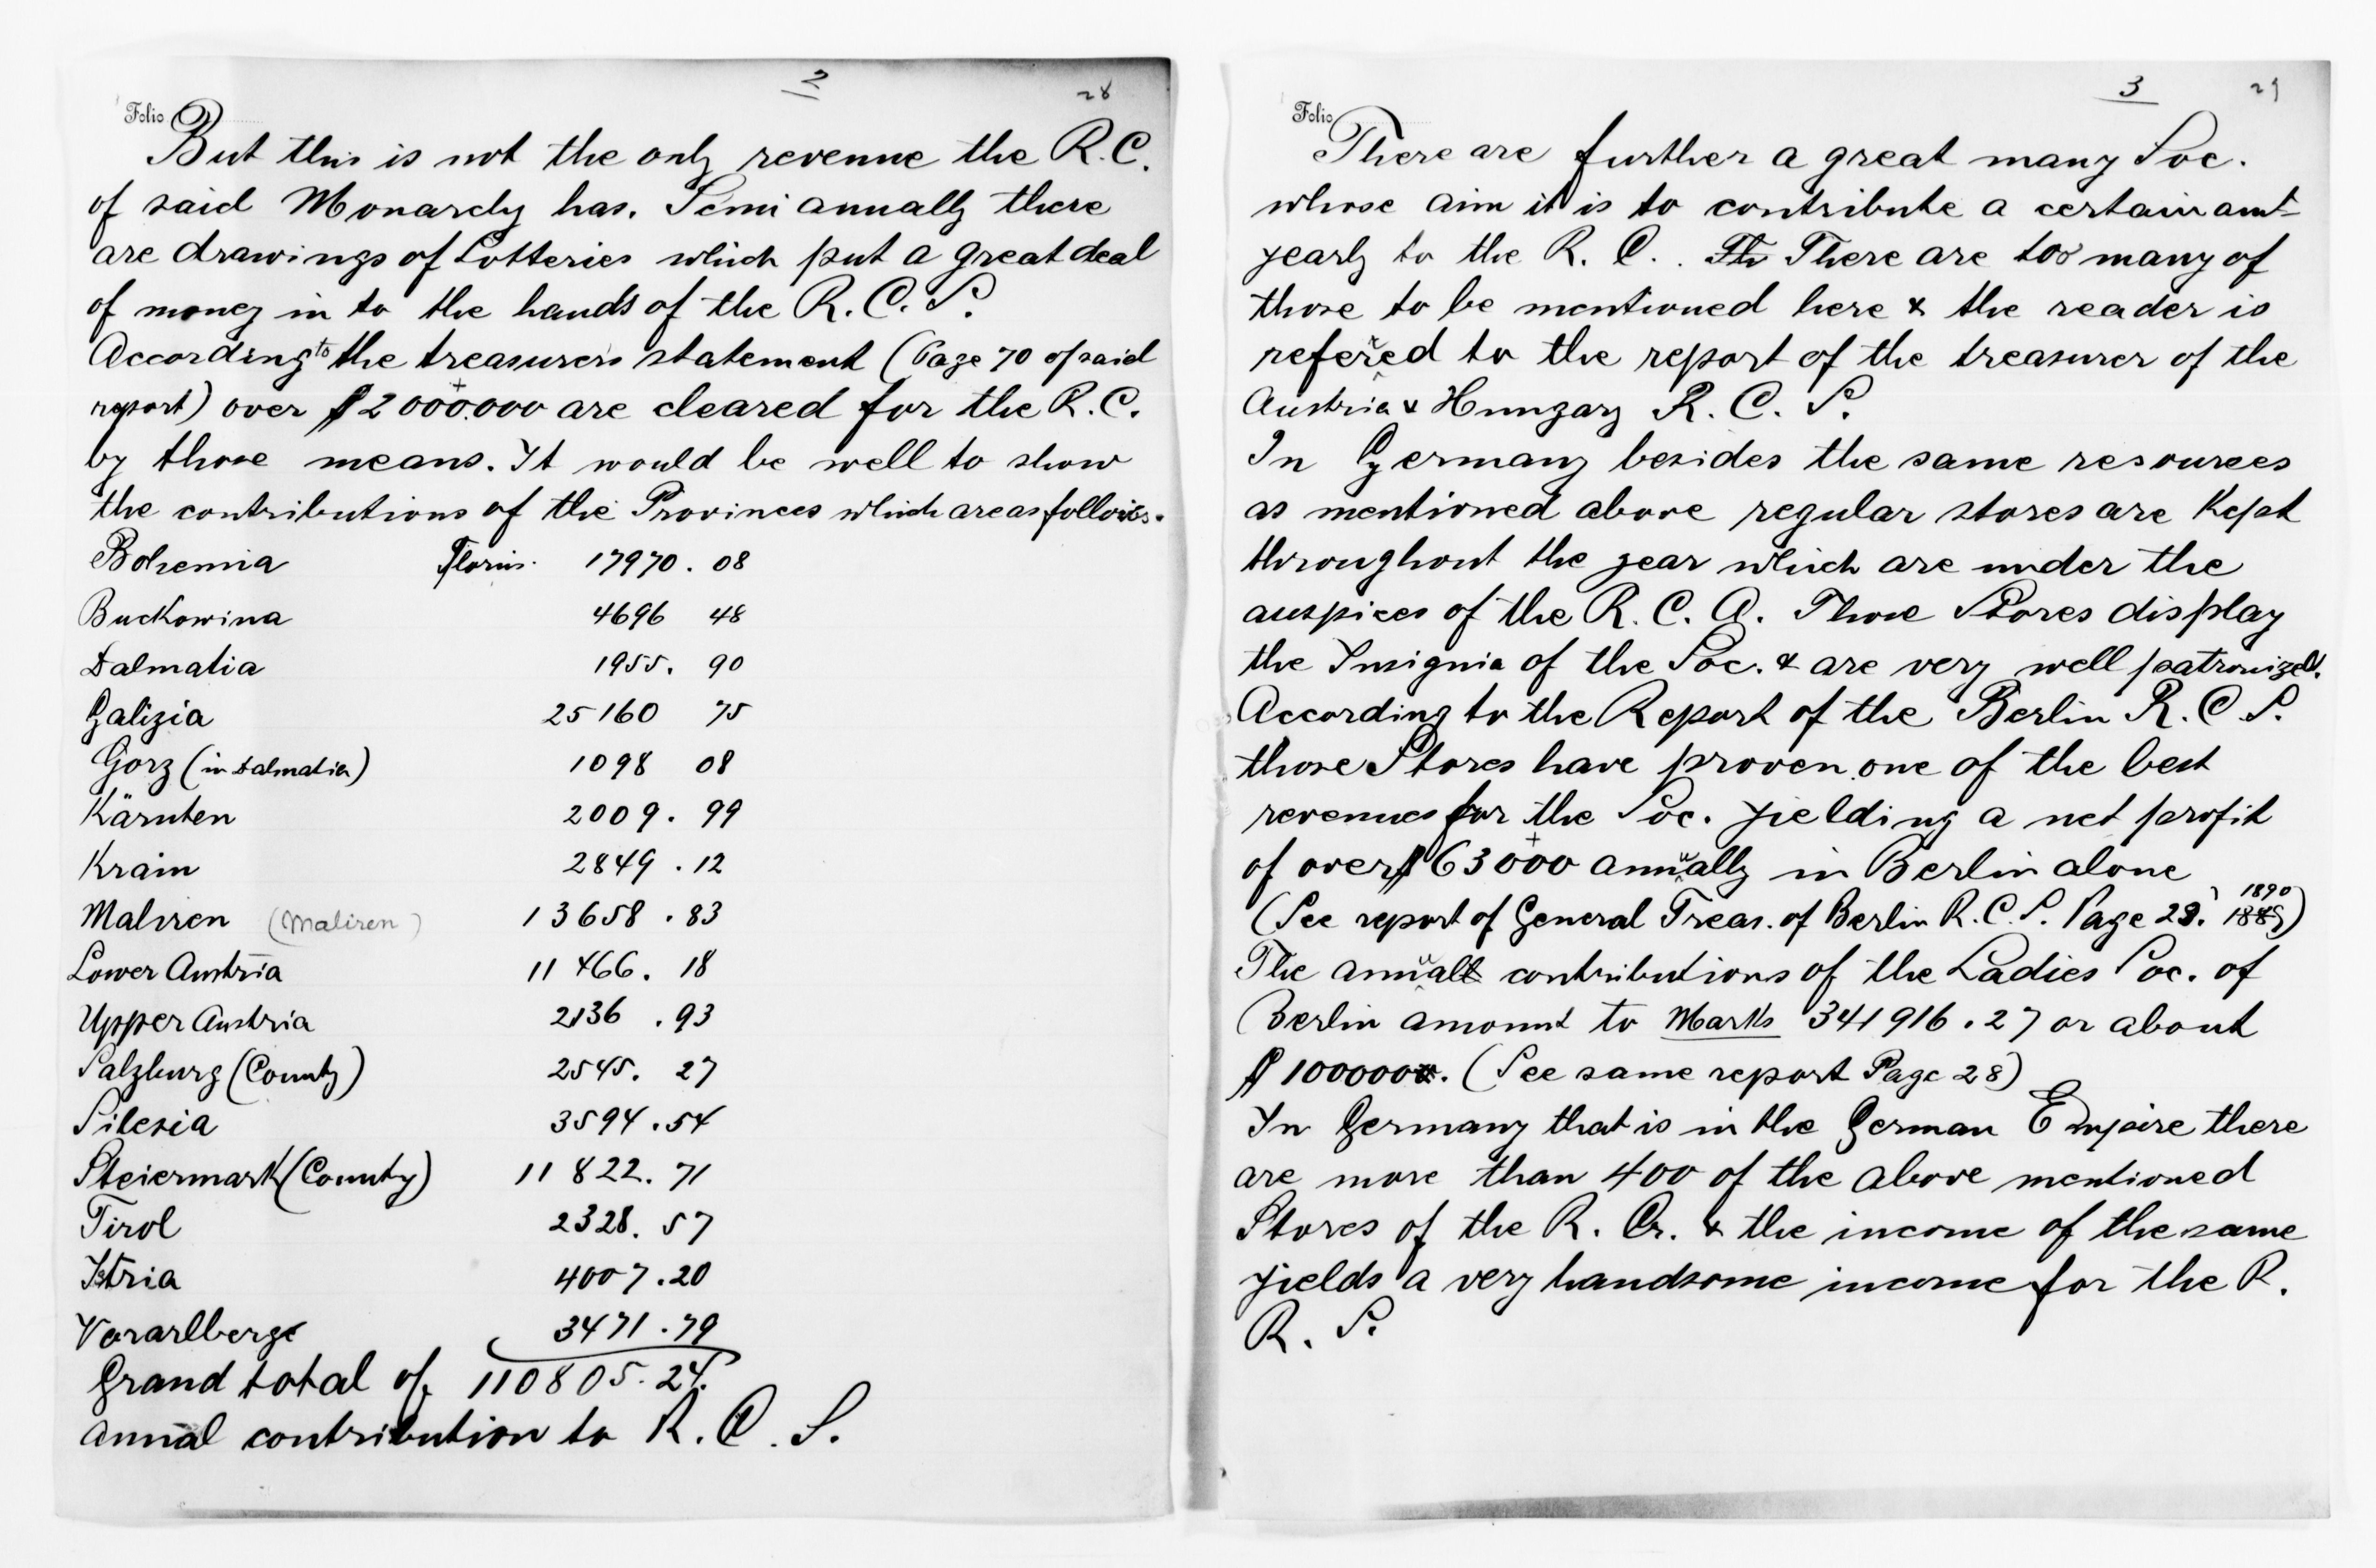 2
28
Folio
But this is not the only revenue the R.C.
of said Monarchy has. Semi annually there
are drawings of Lotteries which put a great deal
of money in to the hands of the R.C.S.
According to the treasurers statement (Page 70 of said
report) over $2000.000 are cleared for the R.C.
by those means. It would be well to show
the contributions of the Provinces which are as follows.
Bohemia Florins. 17970.08
Buckowina 4696 48
Dalmatia 1955.90
Galizia 25160 75
Gorz (in Dalmatia) 1098 08
Kärnten 2009.99
Krain 2849.12
Mahren (Mahren) 13658.83
Lower Austria 11466.18
Upper Austria 2136.93
Salzburg (County) 2545.27
Silesia 3594.54
Steiermark (County) 11822.71
Tirol 2328.57
Istria 4007.20
Vorarlberge 3471.79
Grand total of 110805.24.
annual contribution to R.C.S.
3
29
Folio
There are further a great many Soc.
whose aim it is to contribute a certain amt
yearly to the R.C.. Th There are too many of
those to be mentioned here & the reader is
referred to the report of the treasurer of the
Austria & Hungary R.C.S.
In Germany besides the same resources
as mentioned above regular stores are Kept
throughout the year which are under the
auspices of the R.C.A. Those Stores display
the Insignia of the Soc. & are very well patronized.
According to the Report of the Berlin R.C S.
those Stores have proven one of the best
revenues for the Soc. yielding a net profit
of over $63000 annually in Berlin alone
(See report of General Treas. of Berlin R.C.S. Page 28. 1889 1890)
The annual contributions of the Ladies Soc. of
Berlin amount to Marks 341916.27 or about
$100000. (See same report Page 28)
In Germany that is in the German Empire there
are more than 400 of the above mentioned
Stores of the R. Cr. & the income of the same
yields a very handsome income for the R.
R. S.